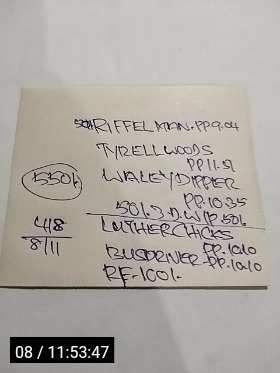 50H RIFFELMAN.PP9.04
TYRELLWOODS
PP11.51
WALEYDIPPER
PP.10.35
501.3.D.W/P.501.
550/.
LUTHERCHICKS
PP.10.10
4/8
8/11
BUSDRIVER.PP.10.10
RF-100/.
08 / 11:53:47